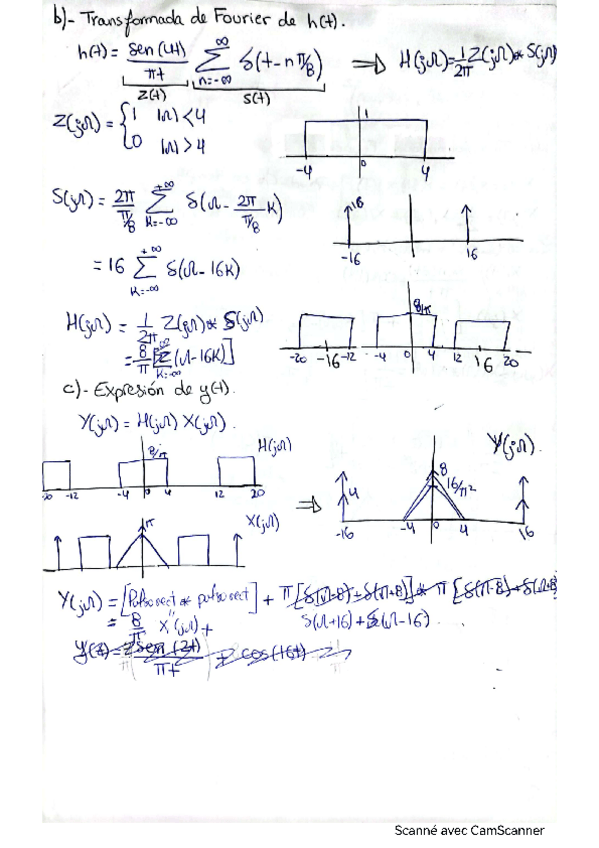 b)- Transformada de Fourier de h(t).
h(t) = sen(4t)/πt ∑_{n=-∞}^{∞} δ(t - nπ/8) ⟹ H(jΩ) = 1/2π Z(jΩ) * S(jΩ)
Z(t) S(t)
Z(jΩ) = { 1 |Ω| < 4
0 |Ω| > 4
1
-4 0 4
S(jΩ) = 2π/(π/8) ∑_{K=-∞}^{+∞} δ(Ω - 2π/(π/8) K)
16
-16 16
= 16 ∑_{K=-∞}^{+∞} δ(Ω - 16K)
H(jΩ) = 1/2π Z(jΩ) * S(jΩ)
8/π
= 8/π [∑_{K=-∞}^{∞} Z(Ω - 16K)]
-20 -16 -12 -4 0 4 12 16 20
c)- Expresión de y(t).
Y(jΩ) = H(jΩ) X(jΩ).
8/π H(jΩ)
-20 -12 -4 0 4 12 20
⟹
Y(jΩ)
8
16/π²
4
-16 -4 0 4 16
π X(jΩ)
Y(jΩ) = [Pulso rect * pulso rect] + π [δ(Ω-8) + δ(Ω+8)] * π [δ(Ω-8) + δ(Ω+8)]
= 8/π X''(jΩ) + δ(Ω+16) + δ(Ω-16)
sen(2t)/πt cos(16t)
Scanné avec CamScanner